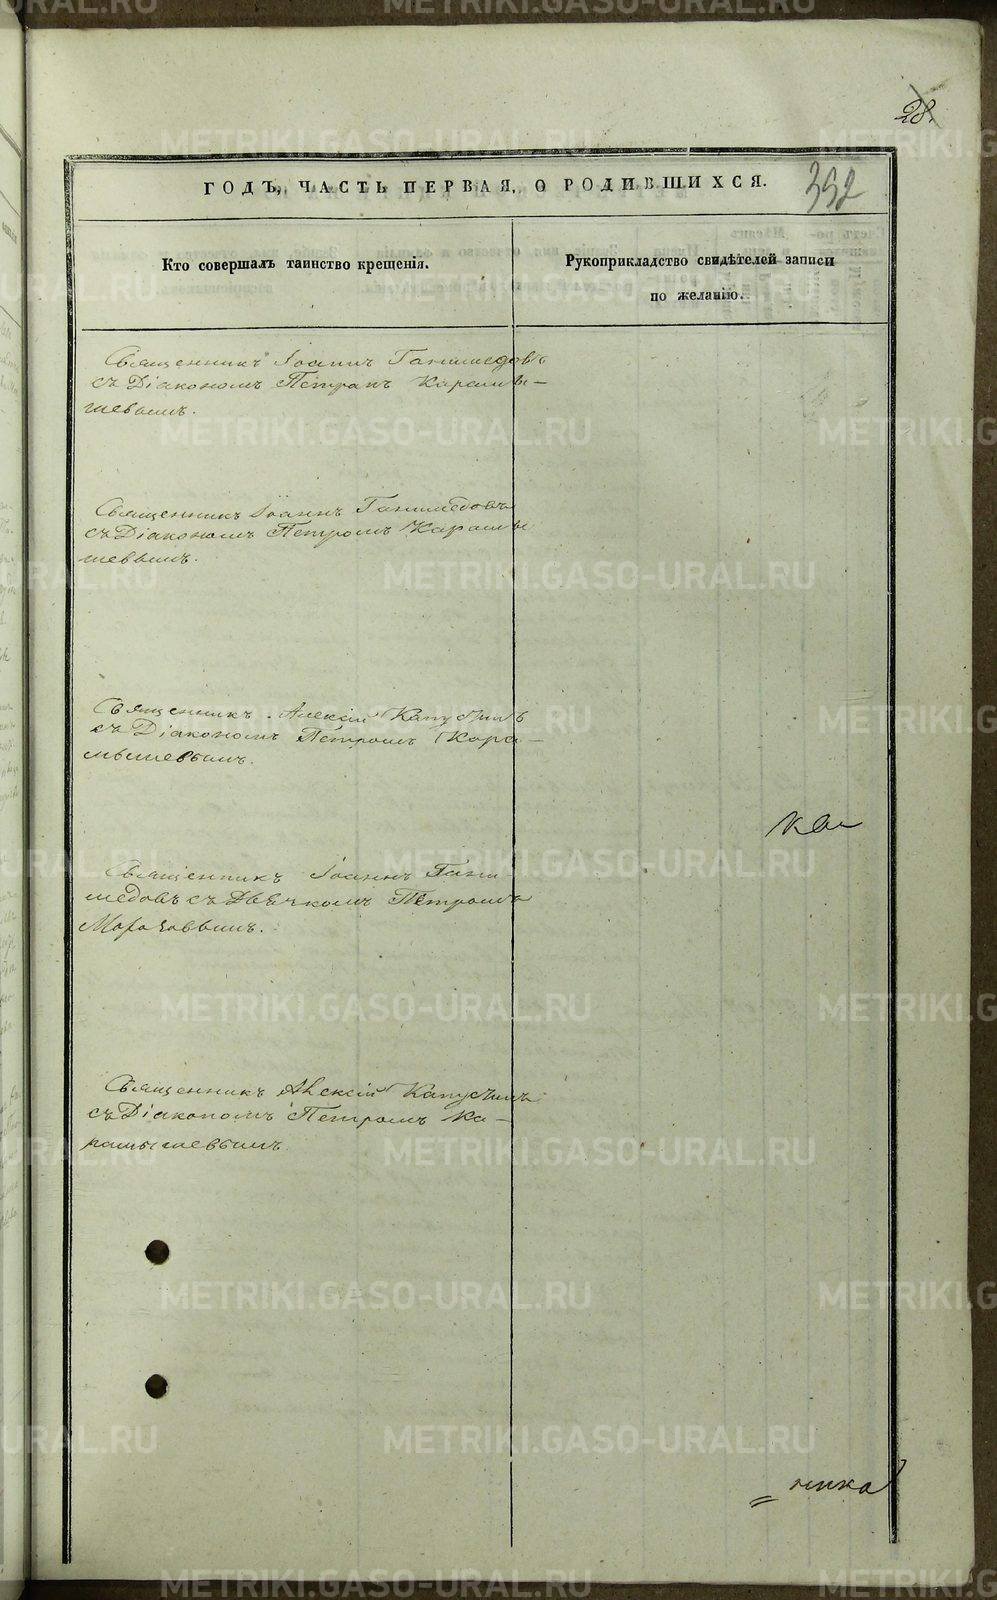 28.
392
ГОДЪ, ЧАСТЬ ПЕРВАЯ, О РОДИВШИХСЯ.
Кто совершалъ таинство крещенія.
Рукоприкладство свидѣтелей записи
по желанію.
Священникъ Іоаннъ Ганимедовъ
съ Діакономъ Петромъ Карамы-
шевымъ.
Священникъ Іоаннъ Ганимедовъ
съ Діакономъ Петромъ Карамы
шевымъ.
Священникъ Алексій Капустинъ
съ Діакономъ Петромъ Кара-
мышевымъ.
Священникъ Іоаннъ Гани
медовъ съ Дьячкомъ Петромъ
Священникъ Алексій Капустинъ
съ Діакономъ Петромъ Ка-
рамышевымъ.
METRIKI.GASO-URAL.RU